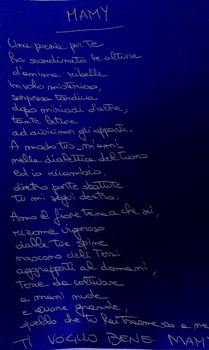 MAMY
Una poesia per te
ha scardinato le alture
d'anima ribelle
Involo misterioso,
sorpresa tardiva
dopo miriadi d'altre,
tante letture
ad avvicinar gli opposti.
A modo tuo m'ami
nella dialettica del tuono
ed io ricambio,
dietro porte sbattute
tu mi segui dentro.
Amo il fiore tenace che sei,
rizoma vigoroso
dalle tue spine
nascono cieli tersi
aggrappati al domani,
Terre da coltivare
a mani nude
e cuore grande,
quello che tu hai trasmesso a me
TI VOGLIO BENE MAMY